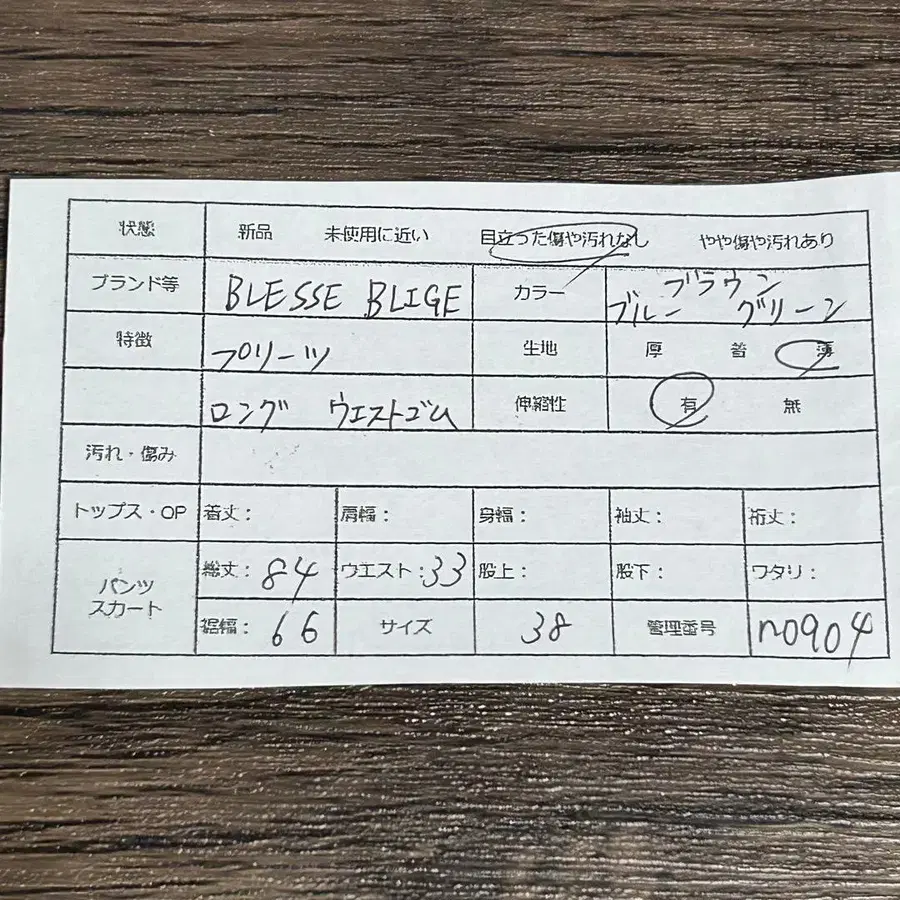 状態 新品 未使用に近い 目立った傷や汚れなし やや傷や汚れあり
ブランド等 BLESSE BLIGE カラー ブラウン ブルー グリーン
特徴 プリーツ 生地 厚 普 薄
ロング ウエストゴム 伸縮性 有 無
汚れ・傷み
トップス・OP 着丈: 肩幅: 身幅: 袖丈: 裄丈:
パンツ スカート 総丈: 84 ウエスト: 33 股上: 股下: ワタリ:
裾幅: 66 サイズ 38 管理番号 n0904